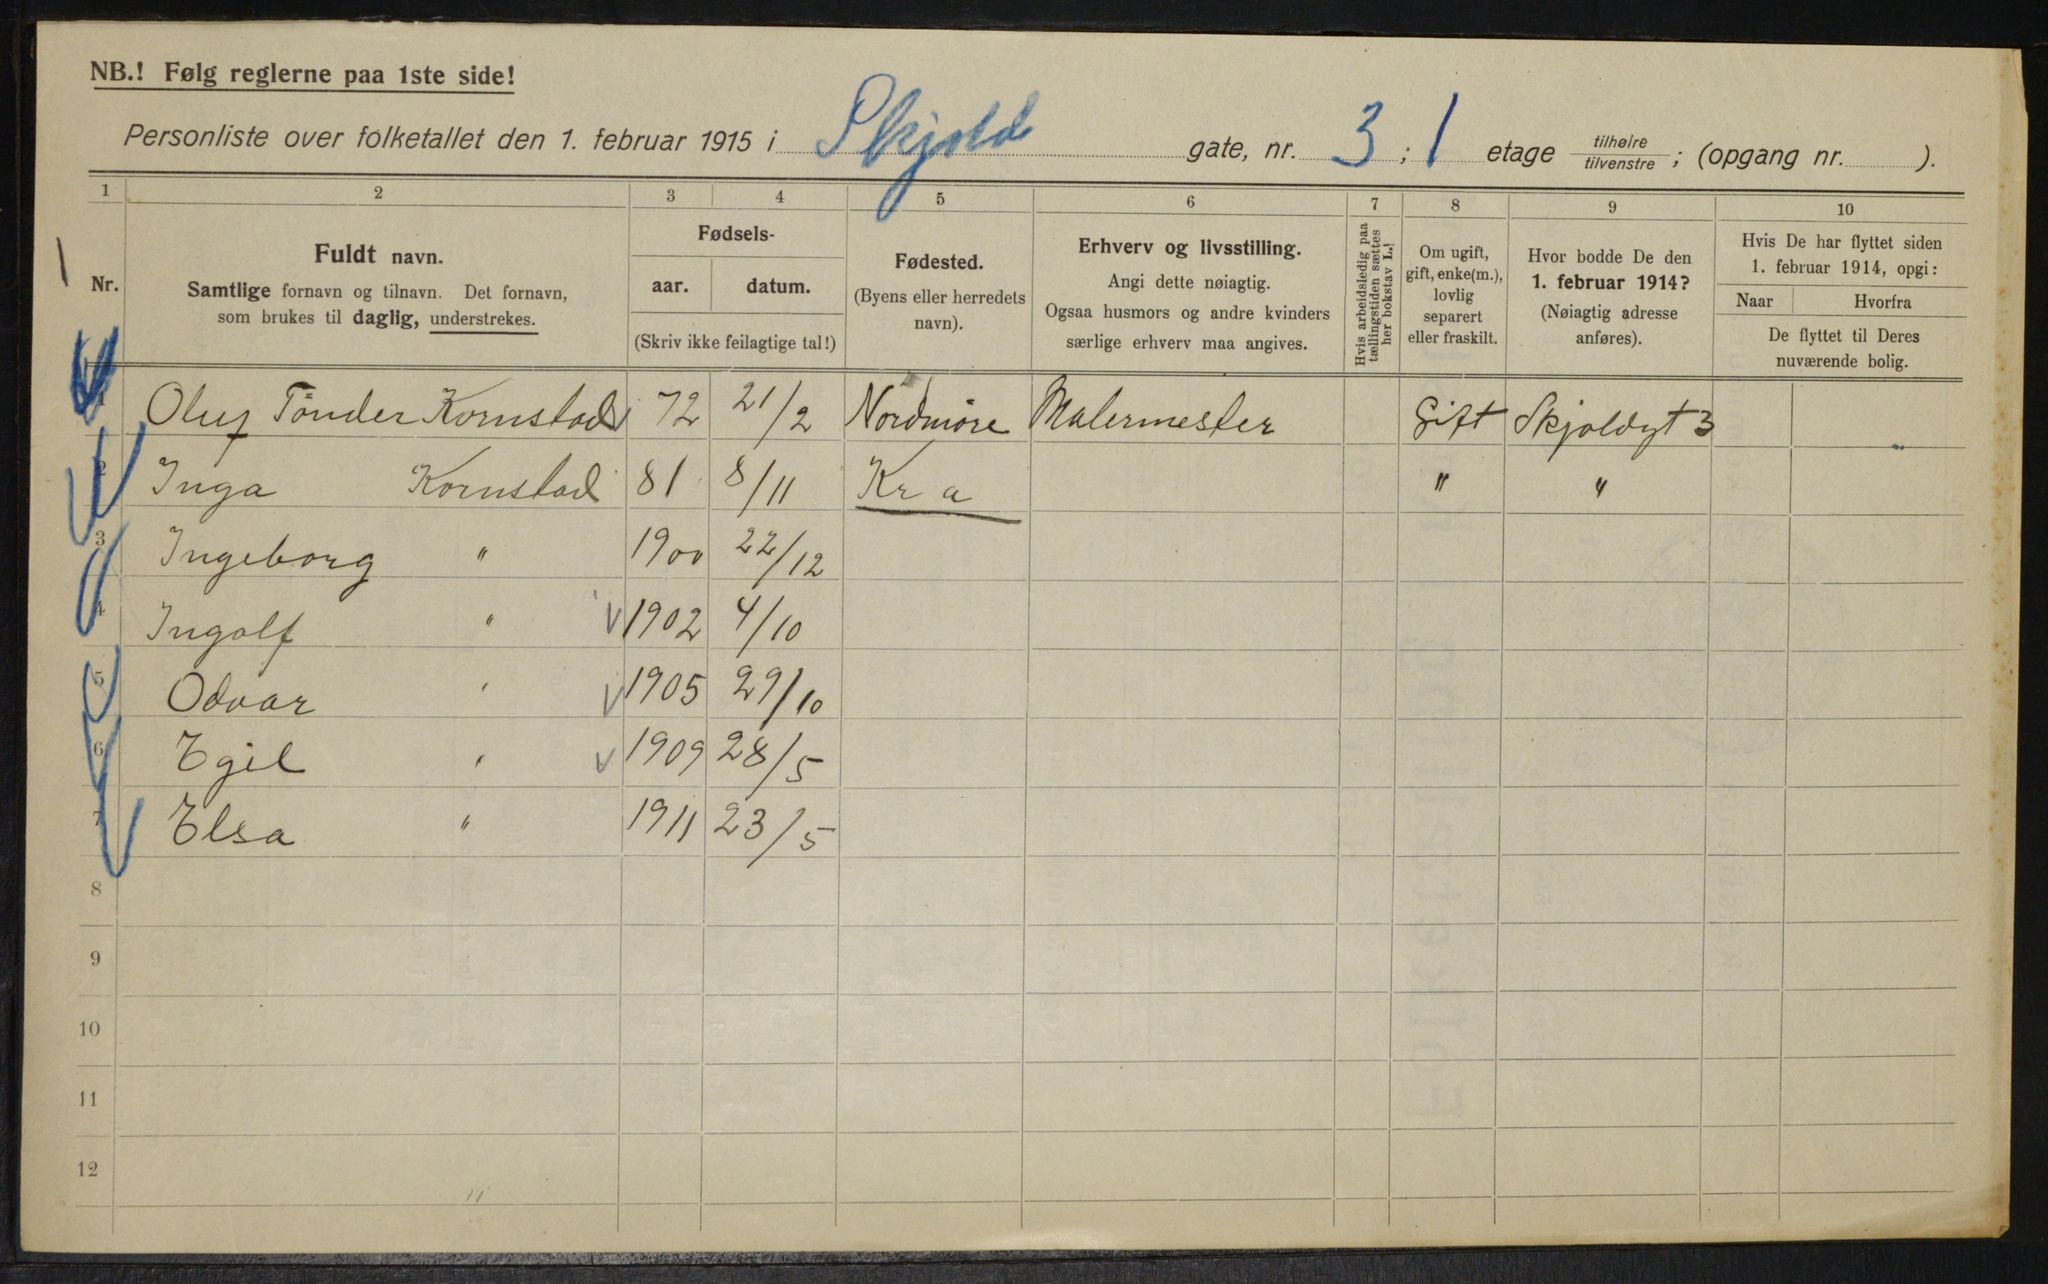 NB.! Følg reglerne paa 1ste side!
Personliste over folketallet den 1. februar 1915 i Skjold gate, nr. 3 ; 1 etage tilhøire / tilvenstre ; (opgang nr. ).
1 2 3 4 5 6 7 8 9 10
Nr.
Fuldt navn.
Samtlige fornavn og tilnavn. Det fornavn,
som brukes til daglig, understrekes.
Fødsels-
aar. datum.
(Skriv ikke feilagtige tal!)
Fødested.
(Byens eller herredets
navn).
Erhverv og livsstilling.
Angi dette nøiagtig.
Ogsaa husmors og andre kvinders
særlige erhverv maa angives.
Hvis arbeidsledig paa
tællingstiden sættes
her bokstav L.!
Om ugift,
gift, enke(m.),
lovlig
separert
eller fraskilt.
Hvor bodde De den
1. februar 1914?
(Nøiagtig adresse
anføres).
Hvis De har flyttet siden
1. februar 1914, opgi:
Naar Hvorfra
De flyttet til Deres
nuværende bolig.
1 Oluf Tönder Kornstad 72 21/2 Nordmøre Malermester Gift Skjoldgt 3
2 Inga Kornstad 81 8/11 Kr a " "
3 Ingeborg " 1900 22/12
4 Ingolf " 1902 4/10
5 Odvar " 1905 29/10
6 Egil " 1909 28/5
7 Elsa " 1911 23/5
8
9
10
11
12